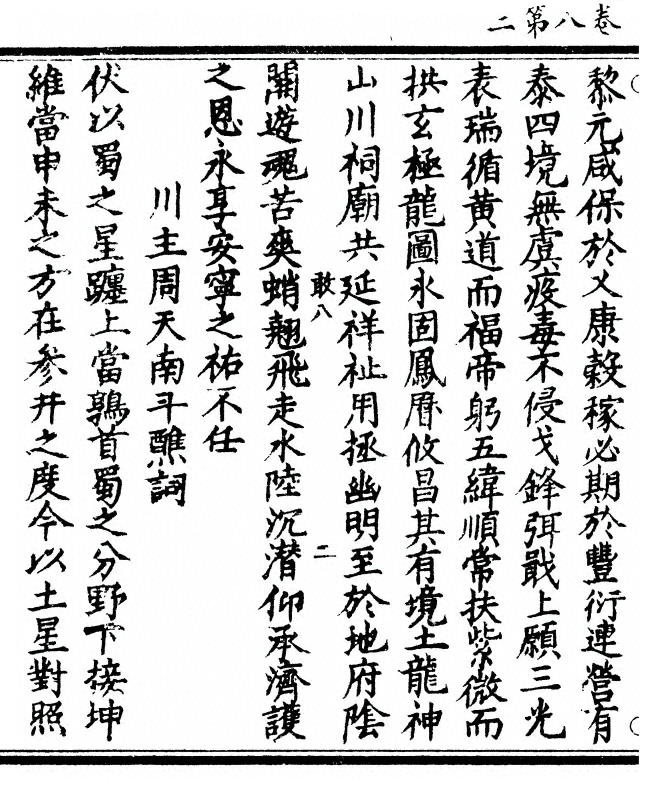 卷八第二
黎元咸保於乂康穀稼必期於豐衍連營有
泰四境無虞疫毒不侵戈鋒弭戢上願三光
表瑞循黄道而福帝躬五緯順常扶紫微而
拱玄極龍圖永固鳳曆攸昌其有境土龍神
山川祠廟共延祥祉用拯幽明至於地府陰
敢八
二
關遊魂苦爽蛸翹飛走水陸沉潛仰承濟護
之恩永享安寧之祐不任
川主周天南斗醮詞
伏以蜀之星躔上當鶉首蜀之分野下接坤
維當申未之方在參井之度今以土星對照